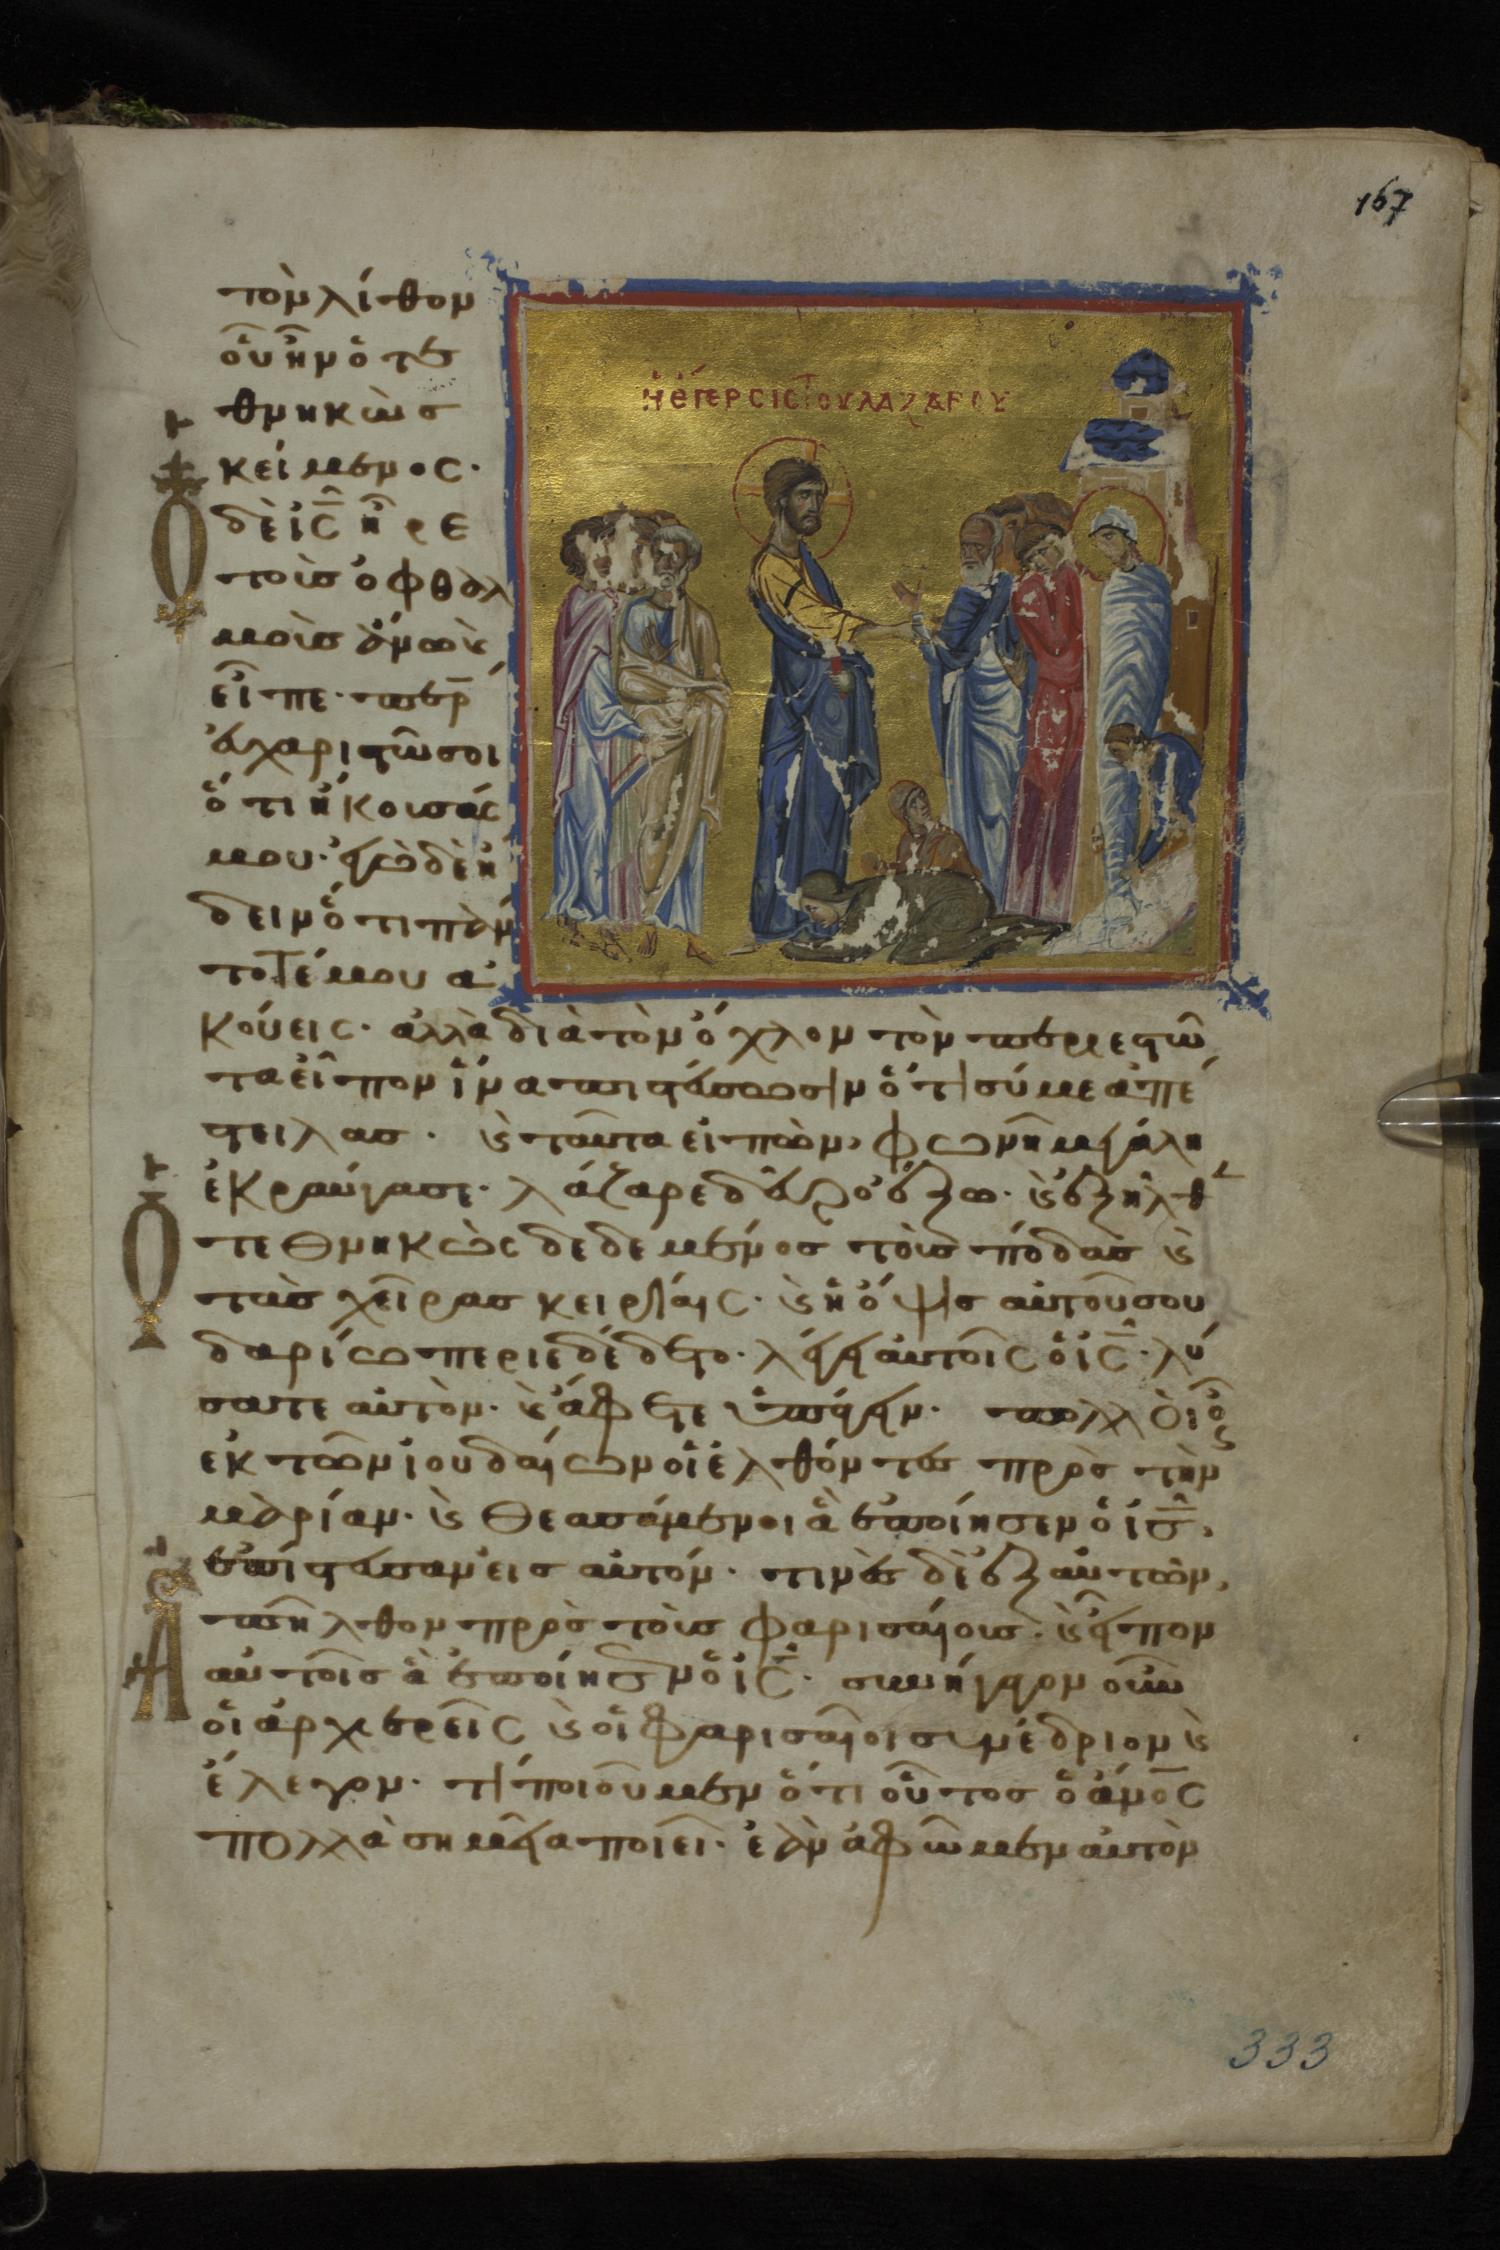 167
Ἡ ἔγερσις τοῦ Λαζάρου
τὸν λίθον
οὗ ἦν ὁ τε
θνηκὼς
κείμενος·
Ὁ δὲ ἰ̅ς̅ ἦρε
τοὺς ὀφθαλ
μοὺς ἄνω κ(αὶ)
εἶπε· πε̅ρ̅
εὐχαριστῶ σοι
ὅτι ἤκουσάς
μου· ἐγὼ δὲ ἤ
δειν ὅτι πάν
τοτέ μου ἀ
κούεις· ἀλλὰ διὰ τὸν ὄχλον τὸν περιεστῶ
τα εἶπον ἵνα πιστεύσωσιν ὅτι σύ με ἀπέ
στειλας· κ(αὶ) ταῦτα εἰπὼν, φωνῆ μεγάλη
ἐκραύγασε· λάζαρε δεῦρο ἔξω· κ(αὶ) ἐξῆλθ
Ὁ τεθνηκὼς δεδεμένος τοὺς πόδας κ(αὶ)
τὰς χεῖρας κειρίαις· κ(αὶ) ἡ ὄψις αὐτοῦ σου
δαρίω περιεδέδετο· λέγει αὐτοῖς ὁ ἰ̅ς̅· λύ
σατε αὐτὸν· κ(αὶ) ἄφετε ὑπάγειν· πολλοὶ οὖ
ἐκ τῶν ἰουδαίων οἱ ἐλθόντες πρὸς τὴν
μαρίαν· κ(αὶ) θεασάμενοι ἃ ἐποίησεν ὁ ἰ̅ς̅,
ἐπίστευσαν εἰς αὐτόν· τινὲς δὲ ἐξ αὐτῶν,
Ἀπῆλθον πρὸς τοὺς φαρισαίους· κ(αὶ) εἶπον
αὐτοῖς ἃ ἐποίησεν ὁ ἰ̅ς̅· συνήγαγον οὖν
οἱ ἀρχιερεῖς κ(αὶ) οἱ φαρισαῖοι συνέδριον κ(αὶ)
ἔλεγον· τί ποιοῦμεν ὅτι οὗτος ὁ ἄν̅ο̅ς̅
πολλὰ σημεῖα ποιεῖ· ἐὰν ἀφῶμεν αὐτὸν
333